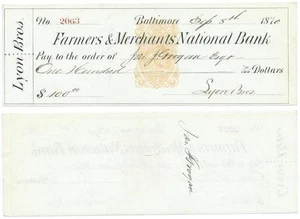 Lyon Bros.
No. 2063 Baltimore Sep 8th 1870
Farmers & Merchants National Bank
Pay to the order of Jas J Grogan Esqr
One Hundred Dollars
$ 100.00 Lyon Bros
Jas J Grogan